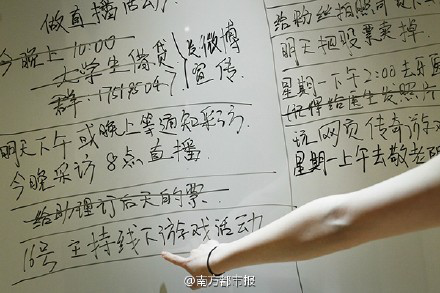 做直播活动.
今晚上10:00
大学生借贷
发微博
宣传.
群:17518504
明天下午或晚上等通知彩访.
今晚采访 8点直播
给助理订后天的票
16号 主持线下游戏活动
给粉丝拍照
明天把股票卖掉.
星期一下午2:00去
记得给医生发照片
玩网页传奇游戏
星期一上午去敬老院
@南方都市报